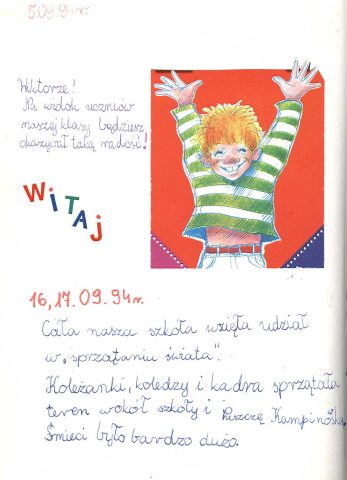 5.09.94r.
Wiktorze!
Na widok uczniów
naszej klasy będziesz
okazywał taką radość!
WiTAj
16,17.09.94r.
Cała nasza szkoła wzięła udział
w „sprzątaniu świata".
Koleżanki, koledzy i kadra sprzątała
teren wokół szkoły i Puszczę Kampinoską.
Śmieci było bardzo dużo.